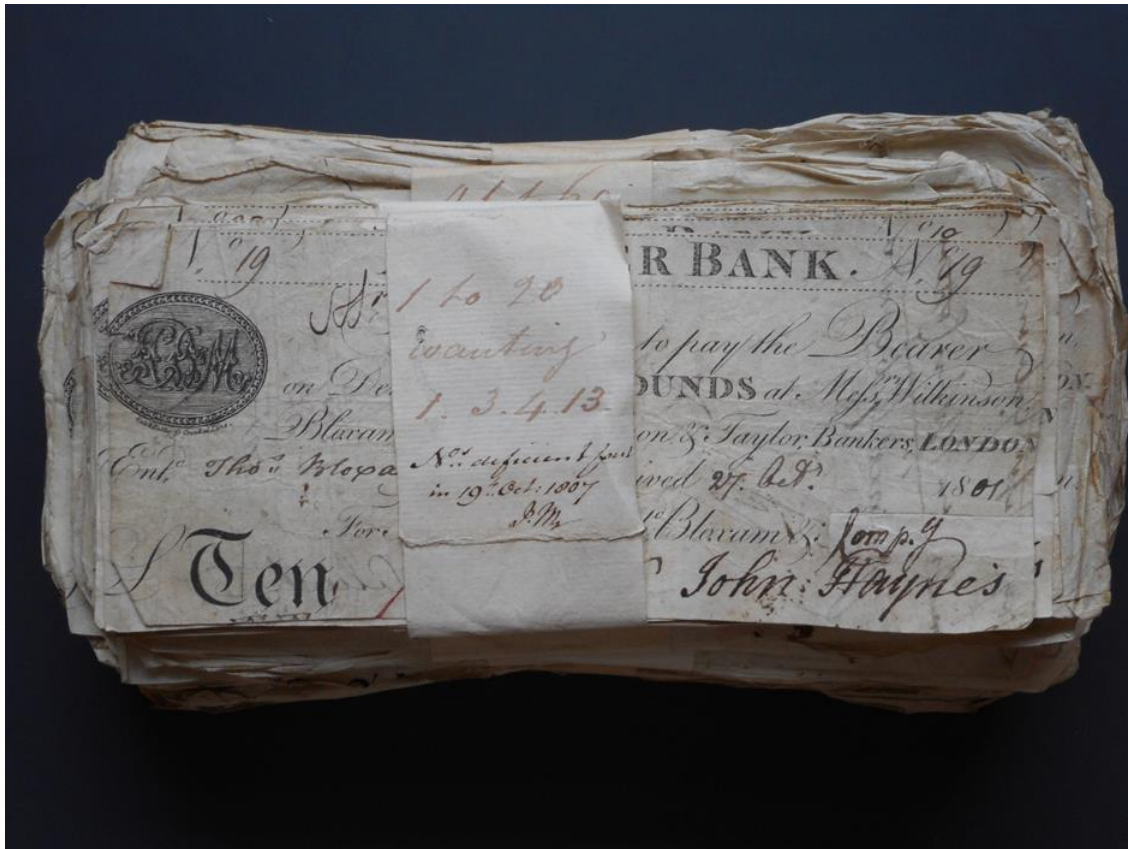 N.º 19
R BANK. N.º 19
to pay the Bearer
on De
OUNDS at Messrs. Wilkinson,
Bloxam
on & Taylor, Bankers, LONDON
Entd. Thos. Bloxa
ived 27. Octr. 1801
For
Bloxam &
Comp.y
£ Ten
John: Haynes
1 to 20
wanting
1. 3. 4. 13.
Nos. deficient
in 19th. Oct: 1807